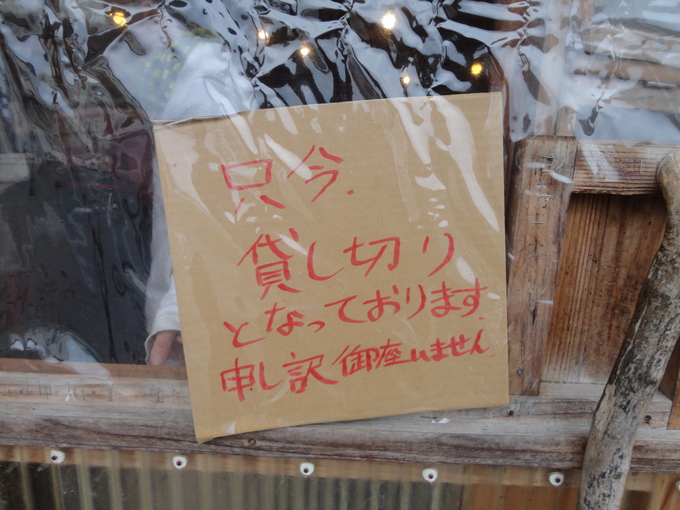 只今.
貸し切り
となっております.
申し訳御座いません.